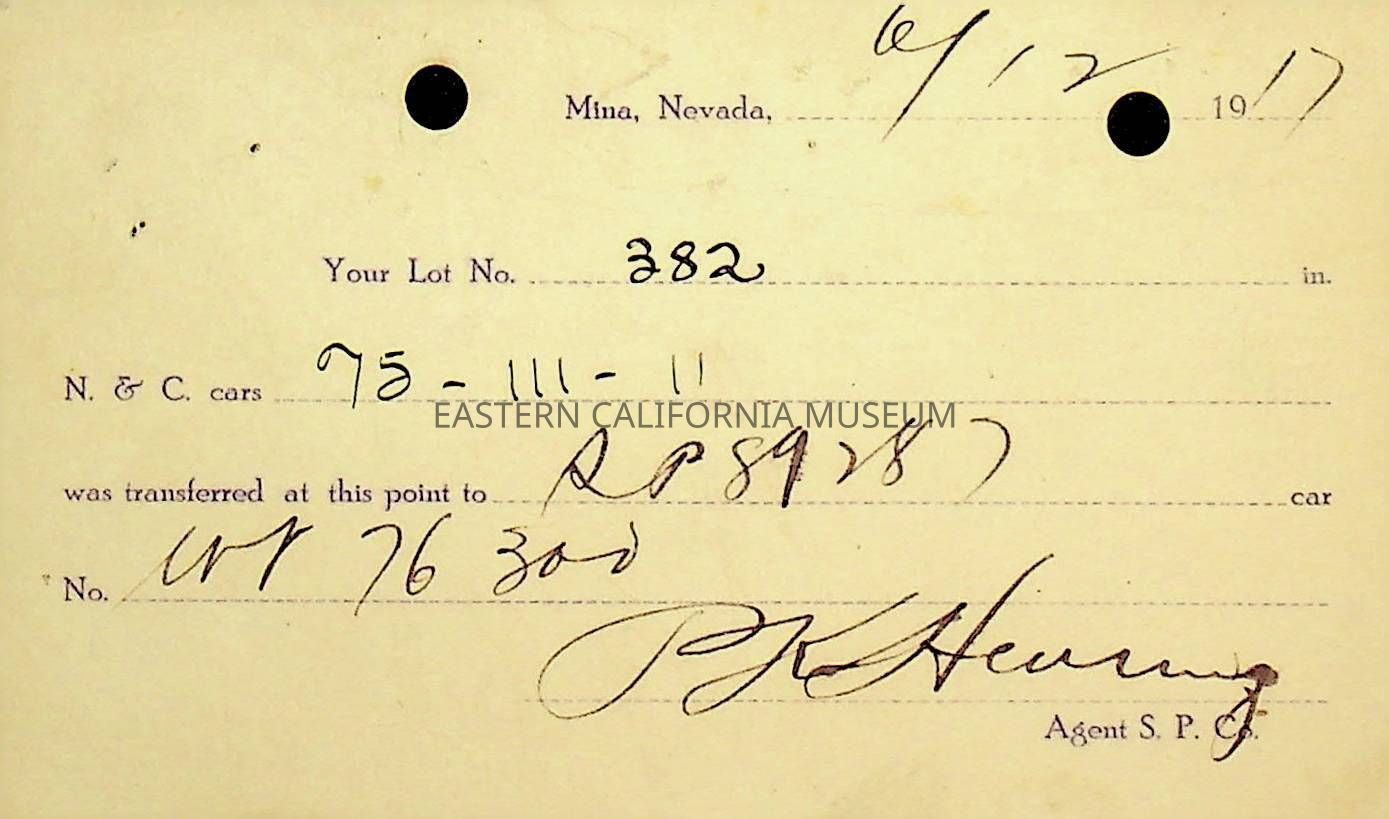 Mina, Nevada, 6/12 1917
Your Lot No. 382 in.
N. & C. cars 75 - 111 - 11
EASTERN CALIFORNIA MUSEUM
was transferred at this point to SP 89287 car
No. Wt 76300
Agent S. P. Co.